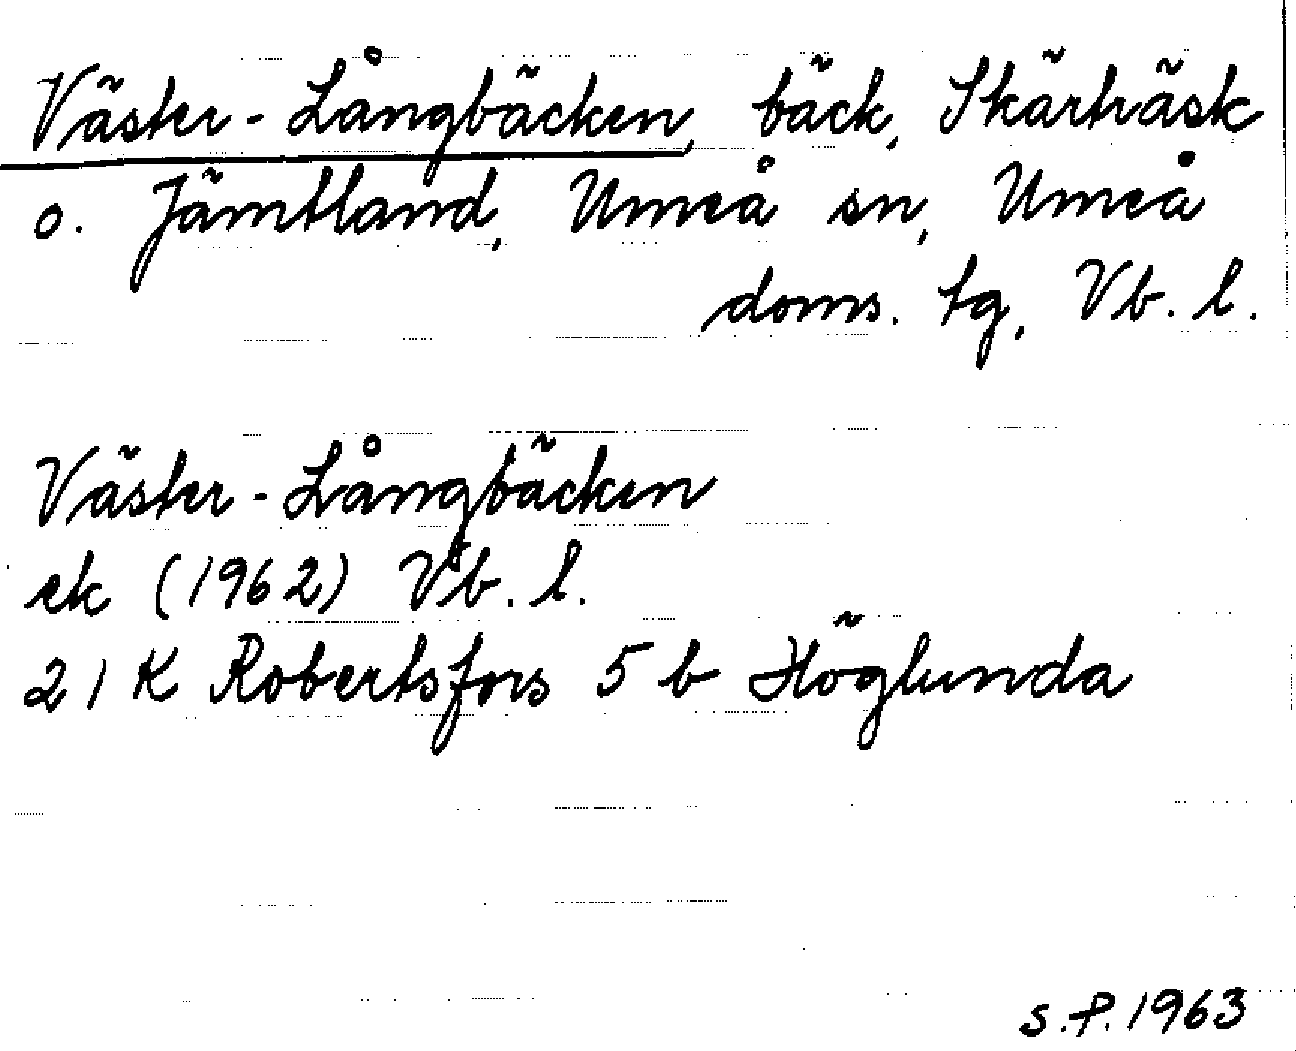 Väster-Långbäcken, bäck, Skärträsk
o. Jämtland, Umeå sn, Umeå
doms. tg, Vb. l.
Väster-Långbäcken
ek (1962) Vb. l.
21 K Robertsfors 5 b Höglunda
S.P. 1963